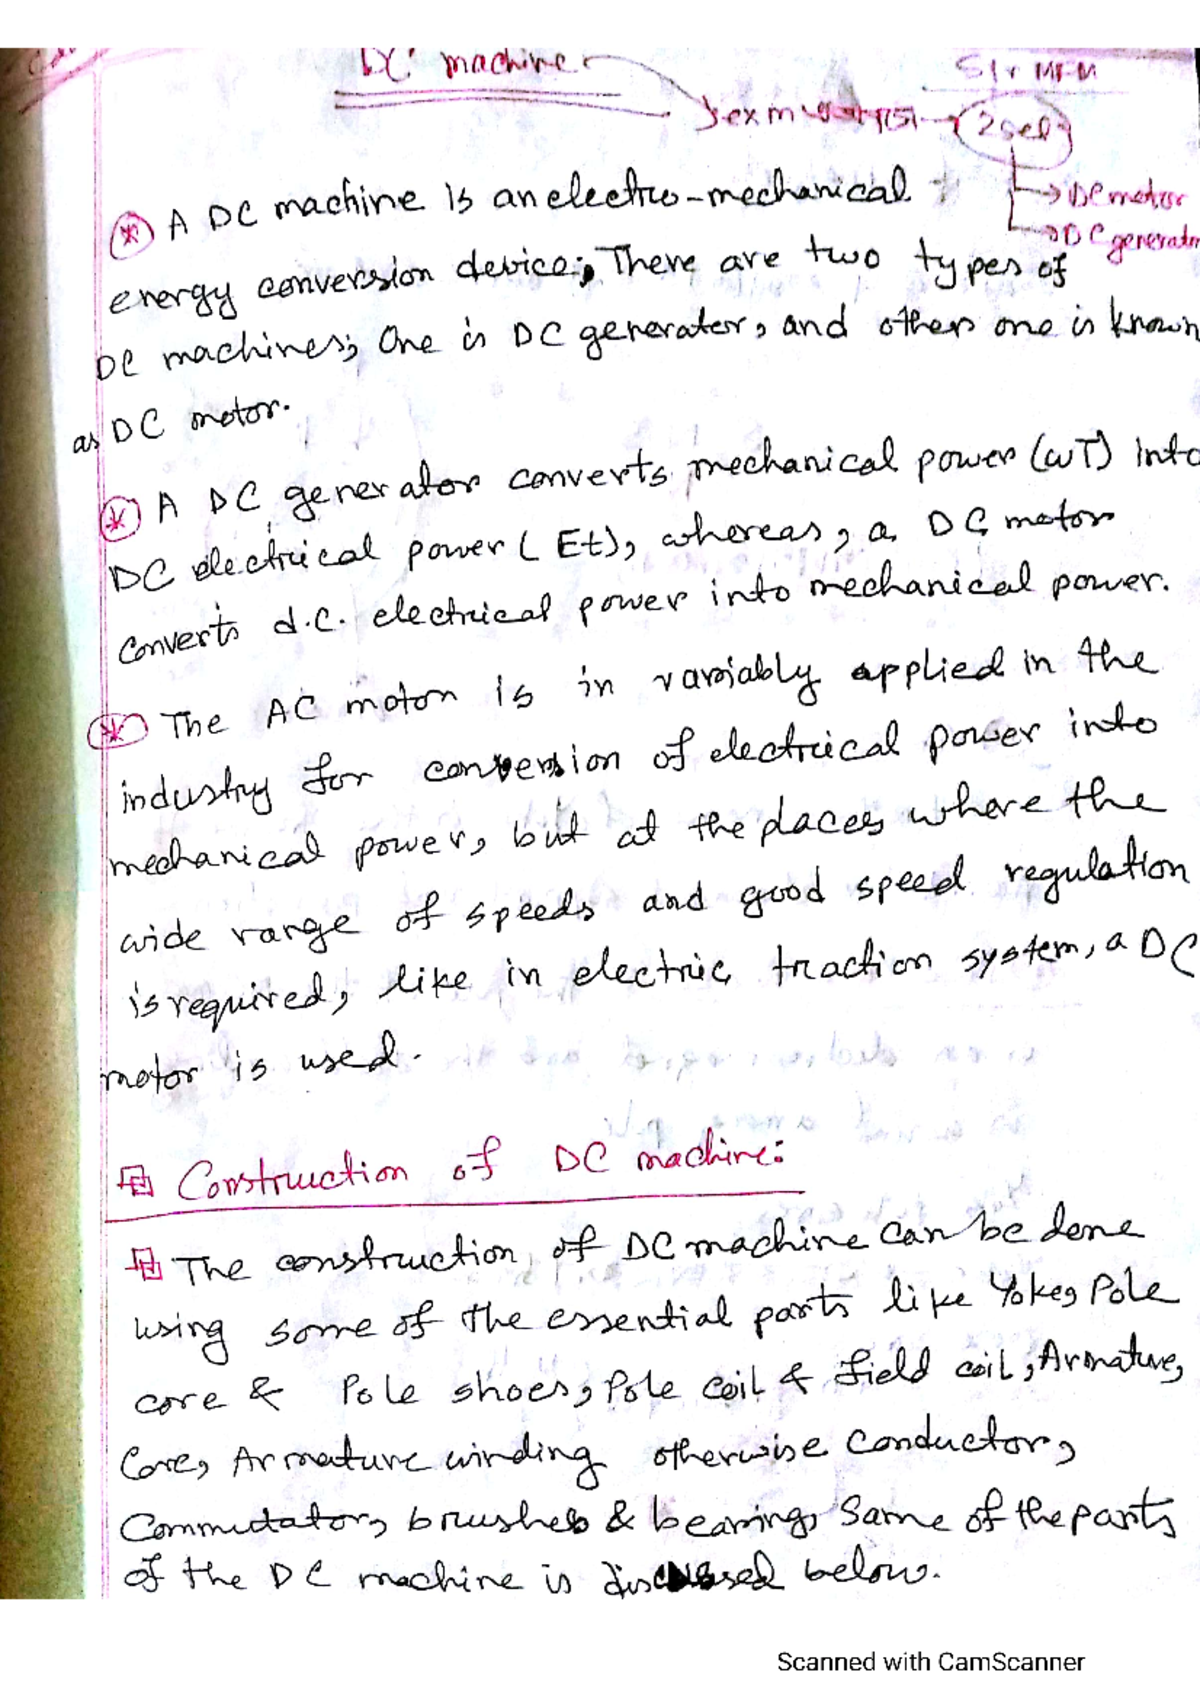 DC machine
Sir MFM
exm
2 sel
→ DC motor
→ DC generator
A DC machine is an electro-mechanical
energy conversion device; There are two types of
DC machines; One is DC generator, and other one is known
as DC motor.
A DC generator converts mechanical power (ωT) into
DC electrical power (Et), whereas, a DC motor
converts d.c. electrical power into mechanical power.
The AC motor is in variably applied in the
industry for conversion of electrical power into
mechanical power, but at the places where the
wide range of speeds and good speed regulation
is required, like in electric traction system, a DC
motor is used.
Construction of DC machine:
The construction of DC machine can be done
using some of the essential parts like Yoke, Pole
core & Pole shoes, Pole coil & field coil, Armature,
Core, Armature winding otherwise conductor,
Commutator, brushes & bearing, Some of the parts
of the DC machine is discussed below.
Scanned with CamScanner